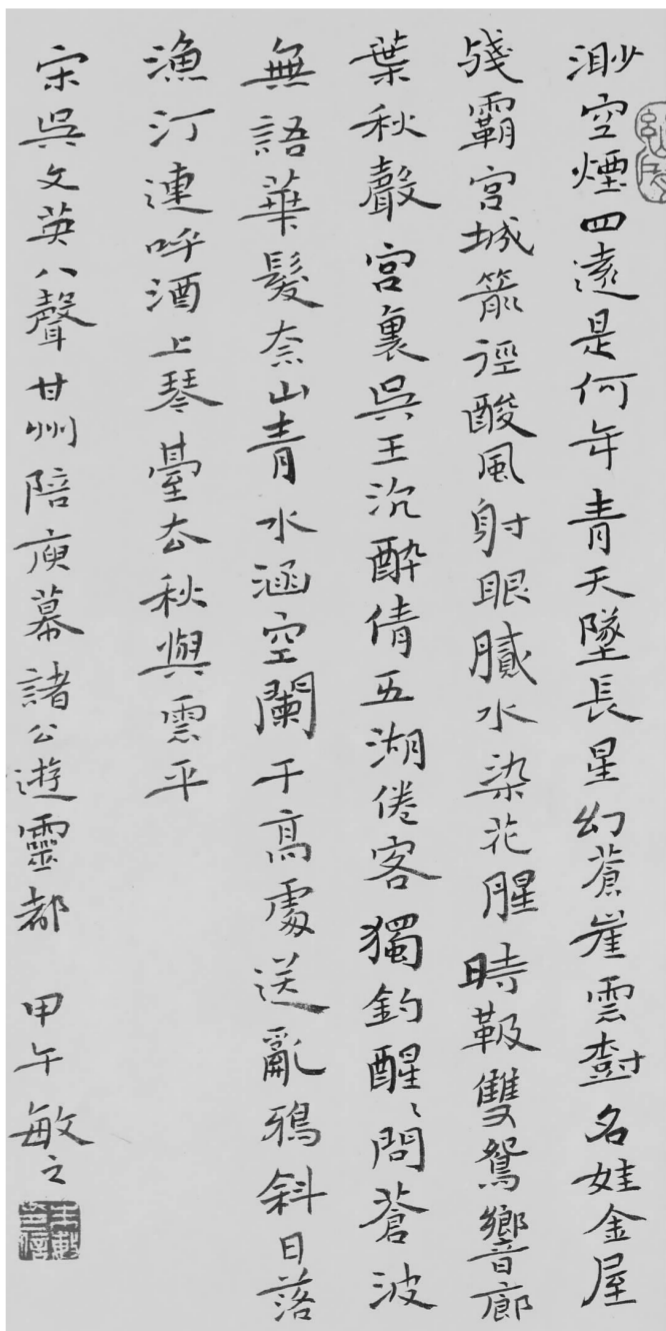 渺空煙四遠是何年青天墜長星幻蒼崖雲樹名娃金屋
殘霸宮城箭徑酸風射眼膩水染花腥時靸雙鴛響廊
葉秋聲宮裏吳王沉醉倩五湖倦客獨釣醒、問蒼波
無語華髮奈山青水涵空闌干高處送亂鴉斜日落
漁汀連呼酒上琴臺去秋與雲平
宋吳文英八聲甘州陪庾幕諸公遊靈都 甲午敏之